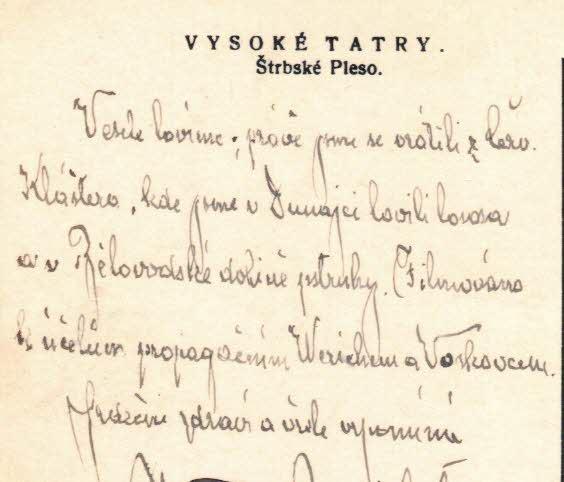 VYSOKÉ TATRY.
Štrbské Pleso.
Vesele lovíme, právě jsme se vrátili z Červ.
Kláštera, kde jsme v Dunajci lovili lososa
a v Bělovodské dolině pstruhy. (Filmováno
k účelům propagačním Werichem a Voskovcem.
Srdečně zdraví a vřele vzpomíná